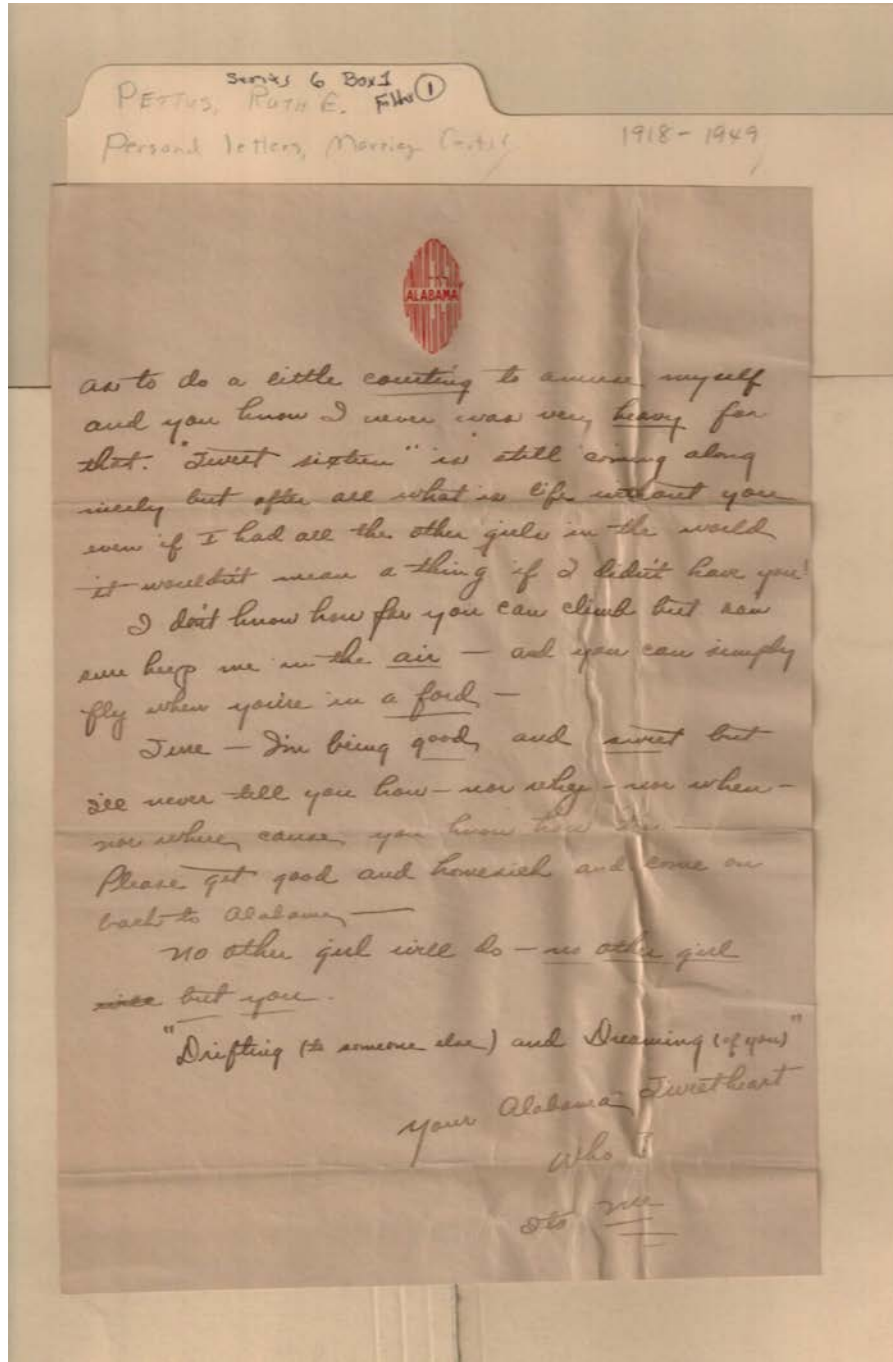 Series 6 Box 1
PETTUS, RUTH E. Folder 1
Personal letters, Marriage Certif 1918 - 1949
ALABAMA
as to do a little courting to amuse myself
and you know I never was very heavy for
that. "Sweet sixteen" is still coming along
nicely but after all what is life without you
even if I had all the other girls in the world
it wouldn't mean a thing if I didn't have you!
I don't know how far you can climb but
sure keep me in the air — and you can simply
fly when you're in a ford —
I'm being good and sweet but
I'll never tell you how — nor why — nor when —
nor where, cause you know
Please get good and homesick and come on
back to Alabama —
No other girl will do — no other girl
but you.
"Drifting (to someone else) and Dreaming (of you)"
Your Alabama Sweetheart
Who
Its me